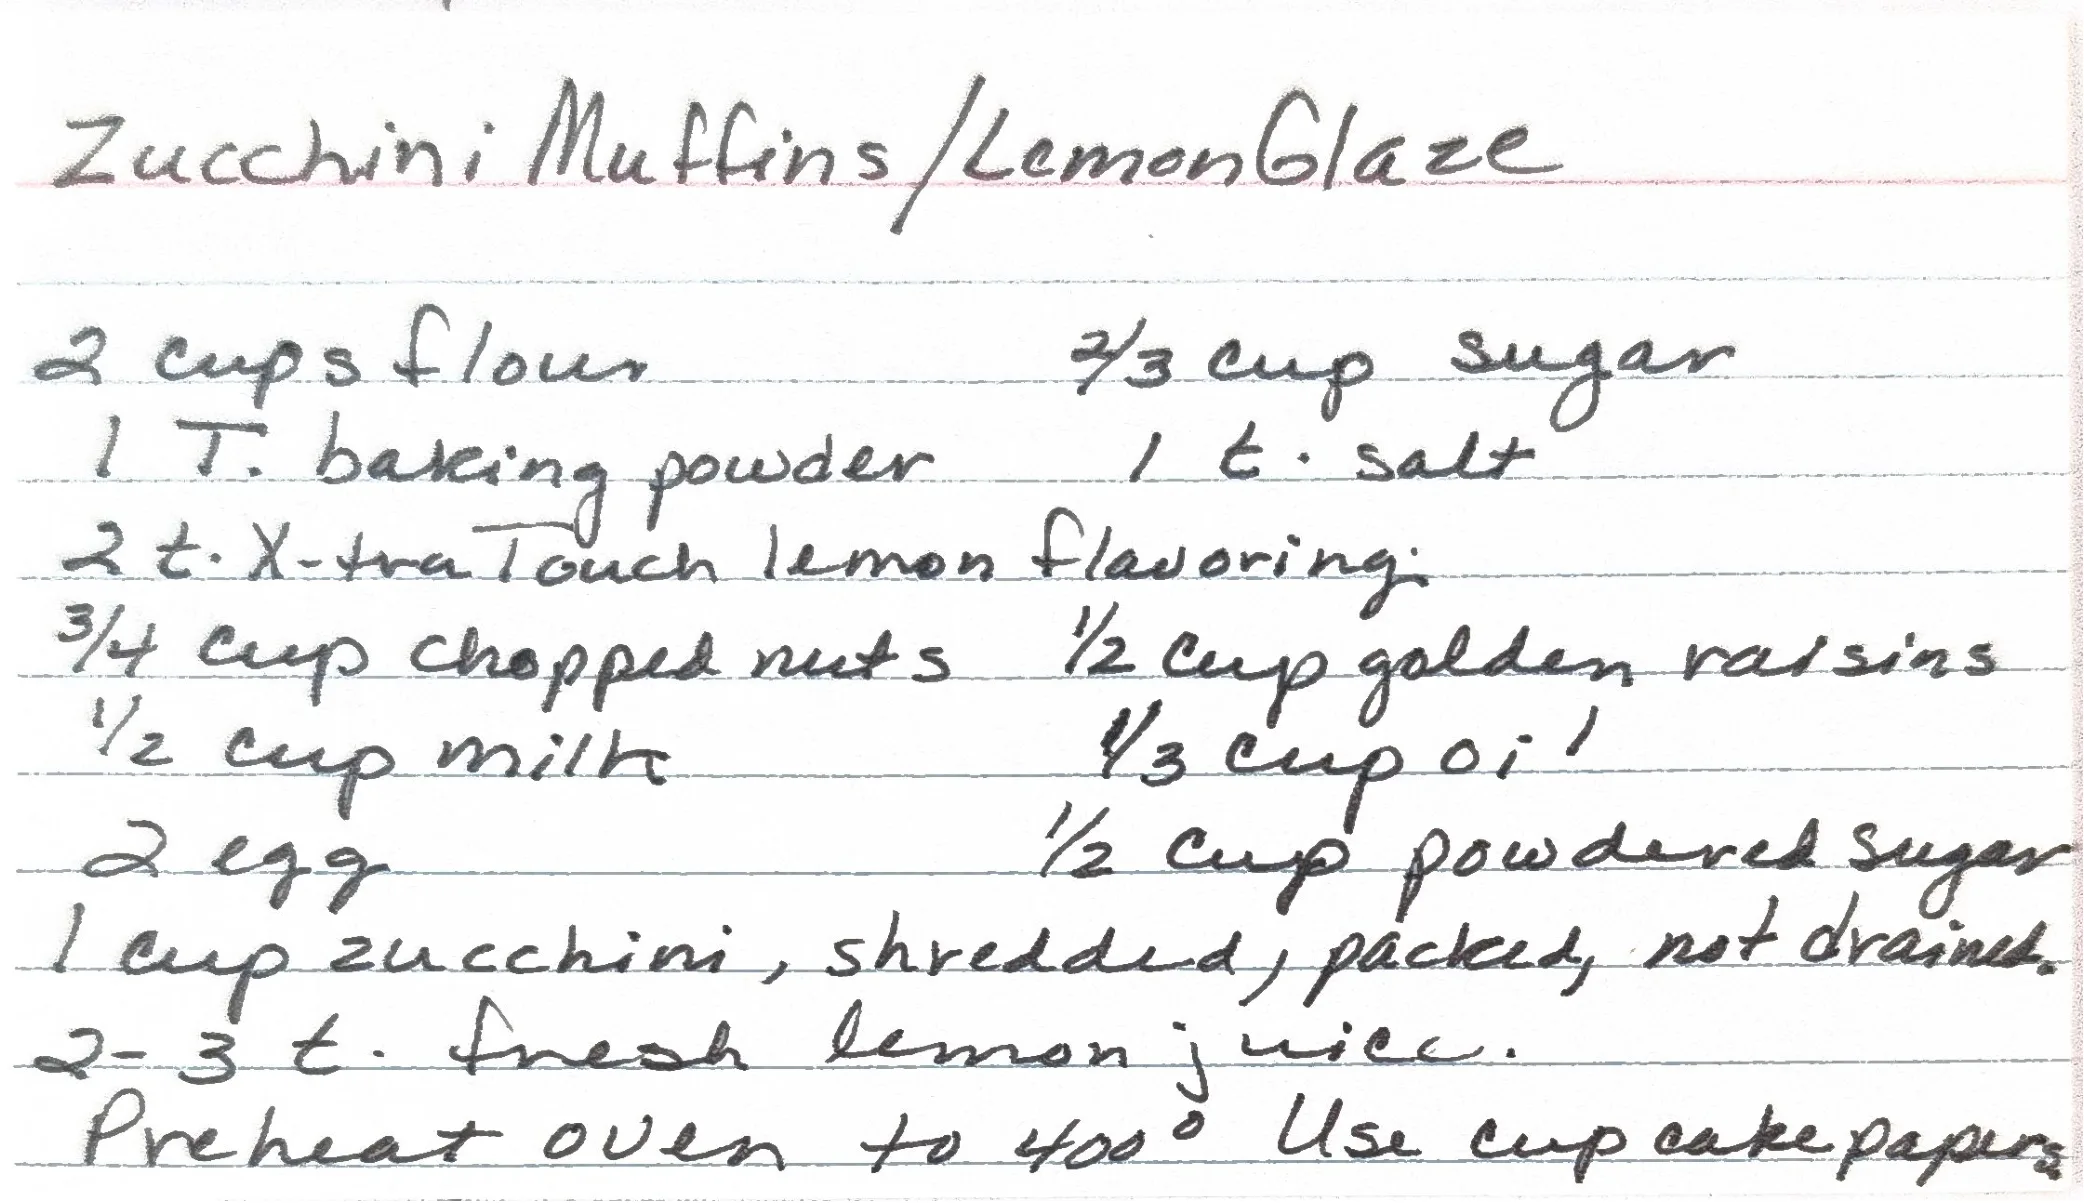 Zucchini Muffins/Lemon Glaze
2 cups flour 2/3 cup sugar
1 T. baking powder 1 t. salt
2 t. X-tra Touch lemon flavoring.
3/4 cup chopped nuts 1/2 cup golden raisins
1/2 cup milk 1/3 cup oil
2 egg 1/2 cup powdered sugar
1 cup zucchini, shredded, packed, not drained.
2-3 t. fresh lemon juice.
Preheat oven to 400° Use cupcake papers